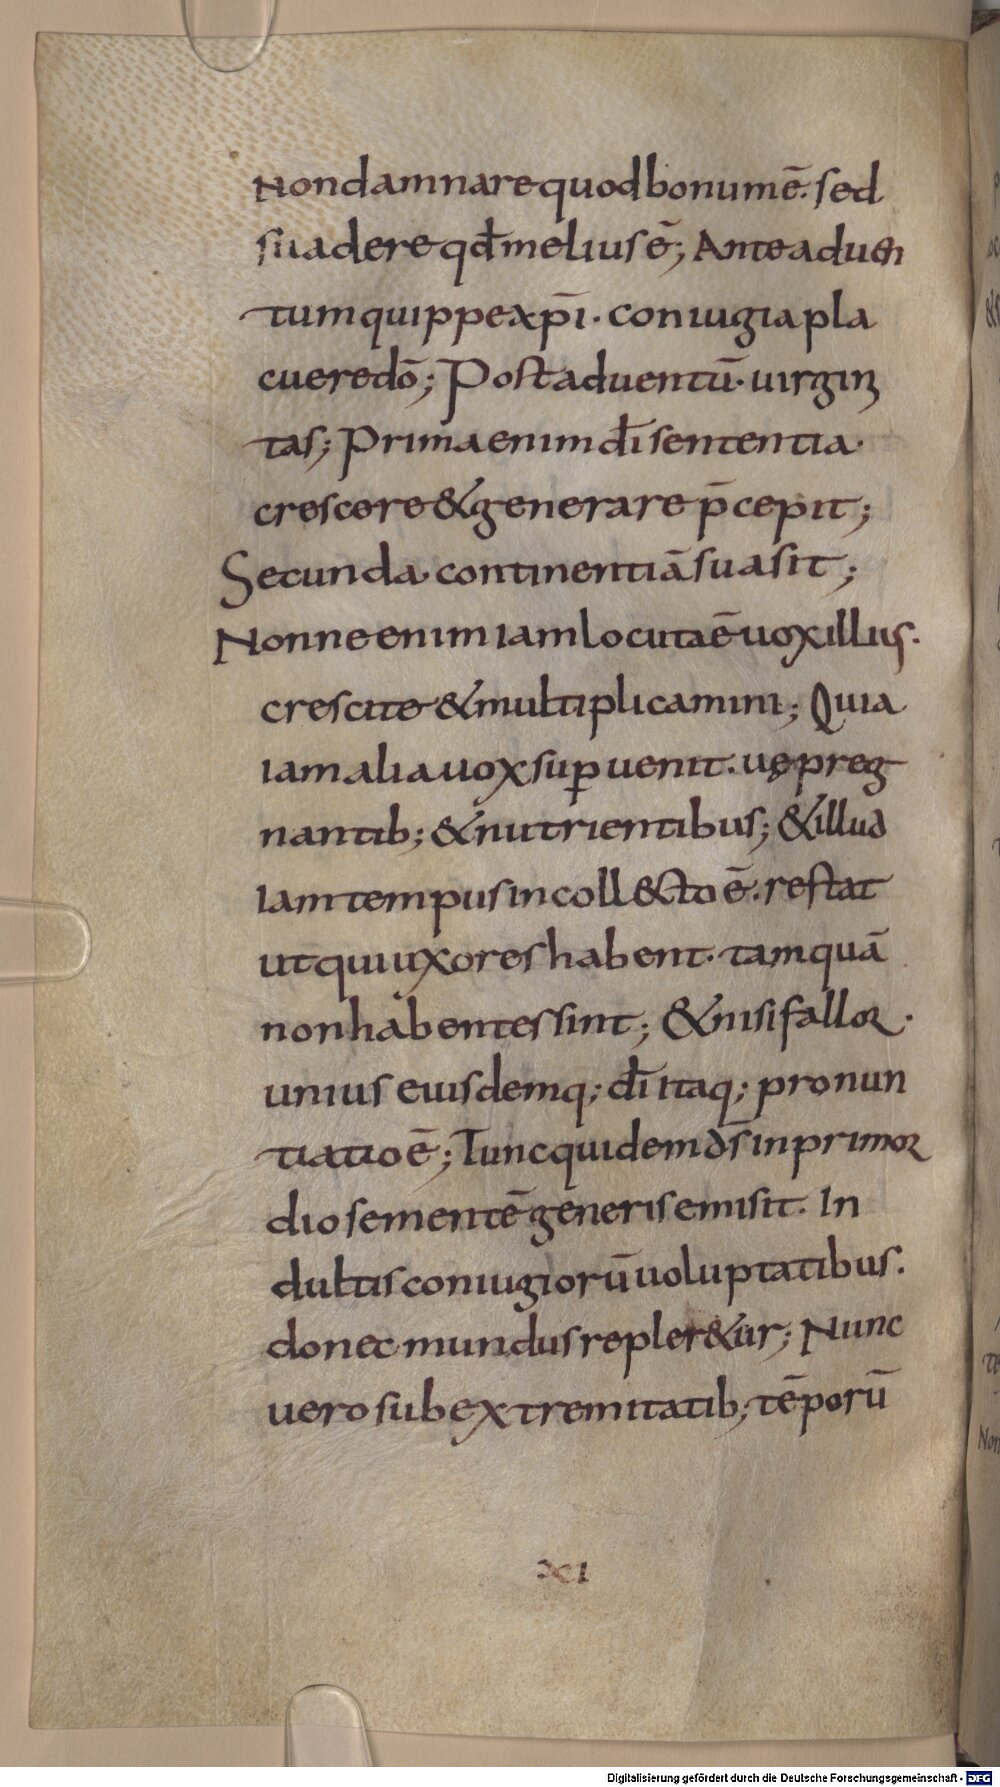 Non damnare quod bonum ē. sed
suadere qđ melius ē; Ante aduen
tum quippe xp̄i. coniugia pla
cuere dō; Post aduentū. uirgini
tas; Prima enim dī sententia.
crescere & generare p̄cepit;
Secunda continentiā suasit;
Nonne enim iam locuta ē uox illius.
crescite & multiplicamini; Quia
iam alia uox suꝑuenit. uę preg
nantib; & nutrientibus; & illud
Iam tempus in coll&cto ē. restat
ut qui uxores habent. tamquā
non habentes sint; & nisi fallor.
unius eiusdemq; dī itaq; pronun
tiatio ē; Tunc quidem ds̄ in primor
dio sementē generis emisit. In
dultis coniugiorū uoluptatibus.
donec mundus repler&ur; Nunc
uero sub extremitatib; tēporū
XI
Digitalisierung gefördert durch die Deutsche Forschungsgemeinschaft - DFG